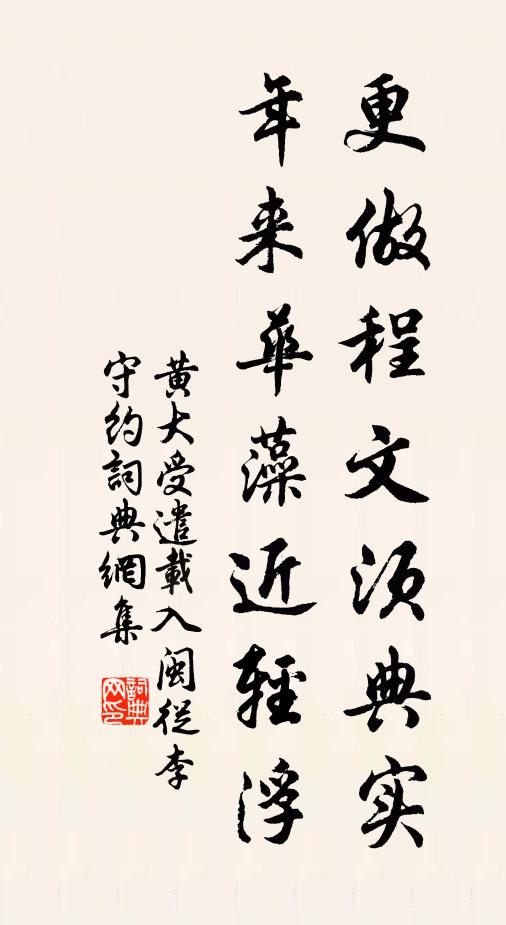 更做程文须典实
年来華藻近輕浮
黄大受遣載入闽從李
守约詞典網集
詞典网印